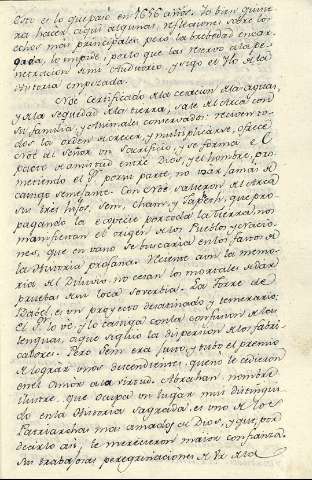 Esto es lo que pasó en 1656 años. Yo bien quisie
ra hacer aqui algunas reflexiones sobre los
cesos mas principales pero la brebedad encar
gada, lo impide; por lo que las reservo a la pe
netracion de mi Auditorio, y sigo el ylo de la
Historia empezada.
Noé certificado de la cesacion de las aguas,
y de la sequedad de la tierra, sale del Arca con
su familia, y Animales conservados: reciviendo
dos la orden de crecer, y multiplicarse, ofrece
Noé al Señor un Sacrificio, y se forma el
pacto de amistad entre Dios, y el hombre, pro
metiendo el S. por su parte, no usar jamas de
castigo semejante. Con Noé salieron del Arca
sus tres hijos, Sem, Cham, y Japeth, que pro
pagando la especie por toda la tierra nos
manifiestan el origen de los Pueblos y Nacio
nes, que en vano se buscaria en los fastos de
la Historia profana. Reciente aun la memo
ria del Diluvio no cesan los mortales de dar
pruebas de su loca soverbia. La torre de
Babel, es un proyecto desatinado y temerario;
el S. lo vé, y lo castiga con la confusion de las
lenguas, a que siguió la dispersion de los fabri
cadores. Pero Sem era justo, y tubo el premio
de lograr unos descendientes, que no le cedieron
en el amor a la virtud. Abrahan nombre
ilustre, que ocupa un lugar mui distingui
do en la Historia Sagrada, es uno de los
Patriarchas mas amados de Dios, y que, por
decirlo asi, le merecieron maior confianza.
Sus trabajosas peregrinaciones de Ur de la